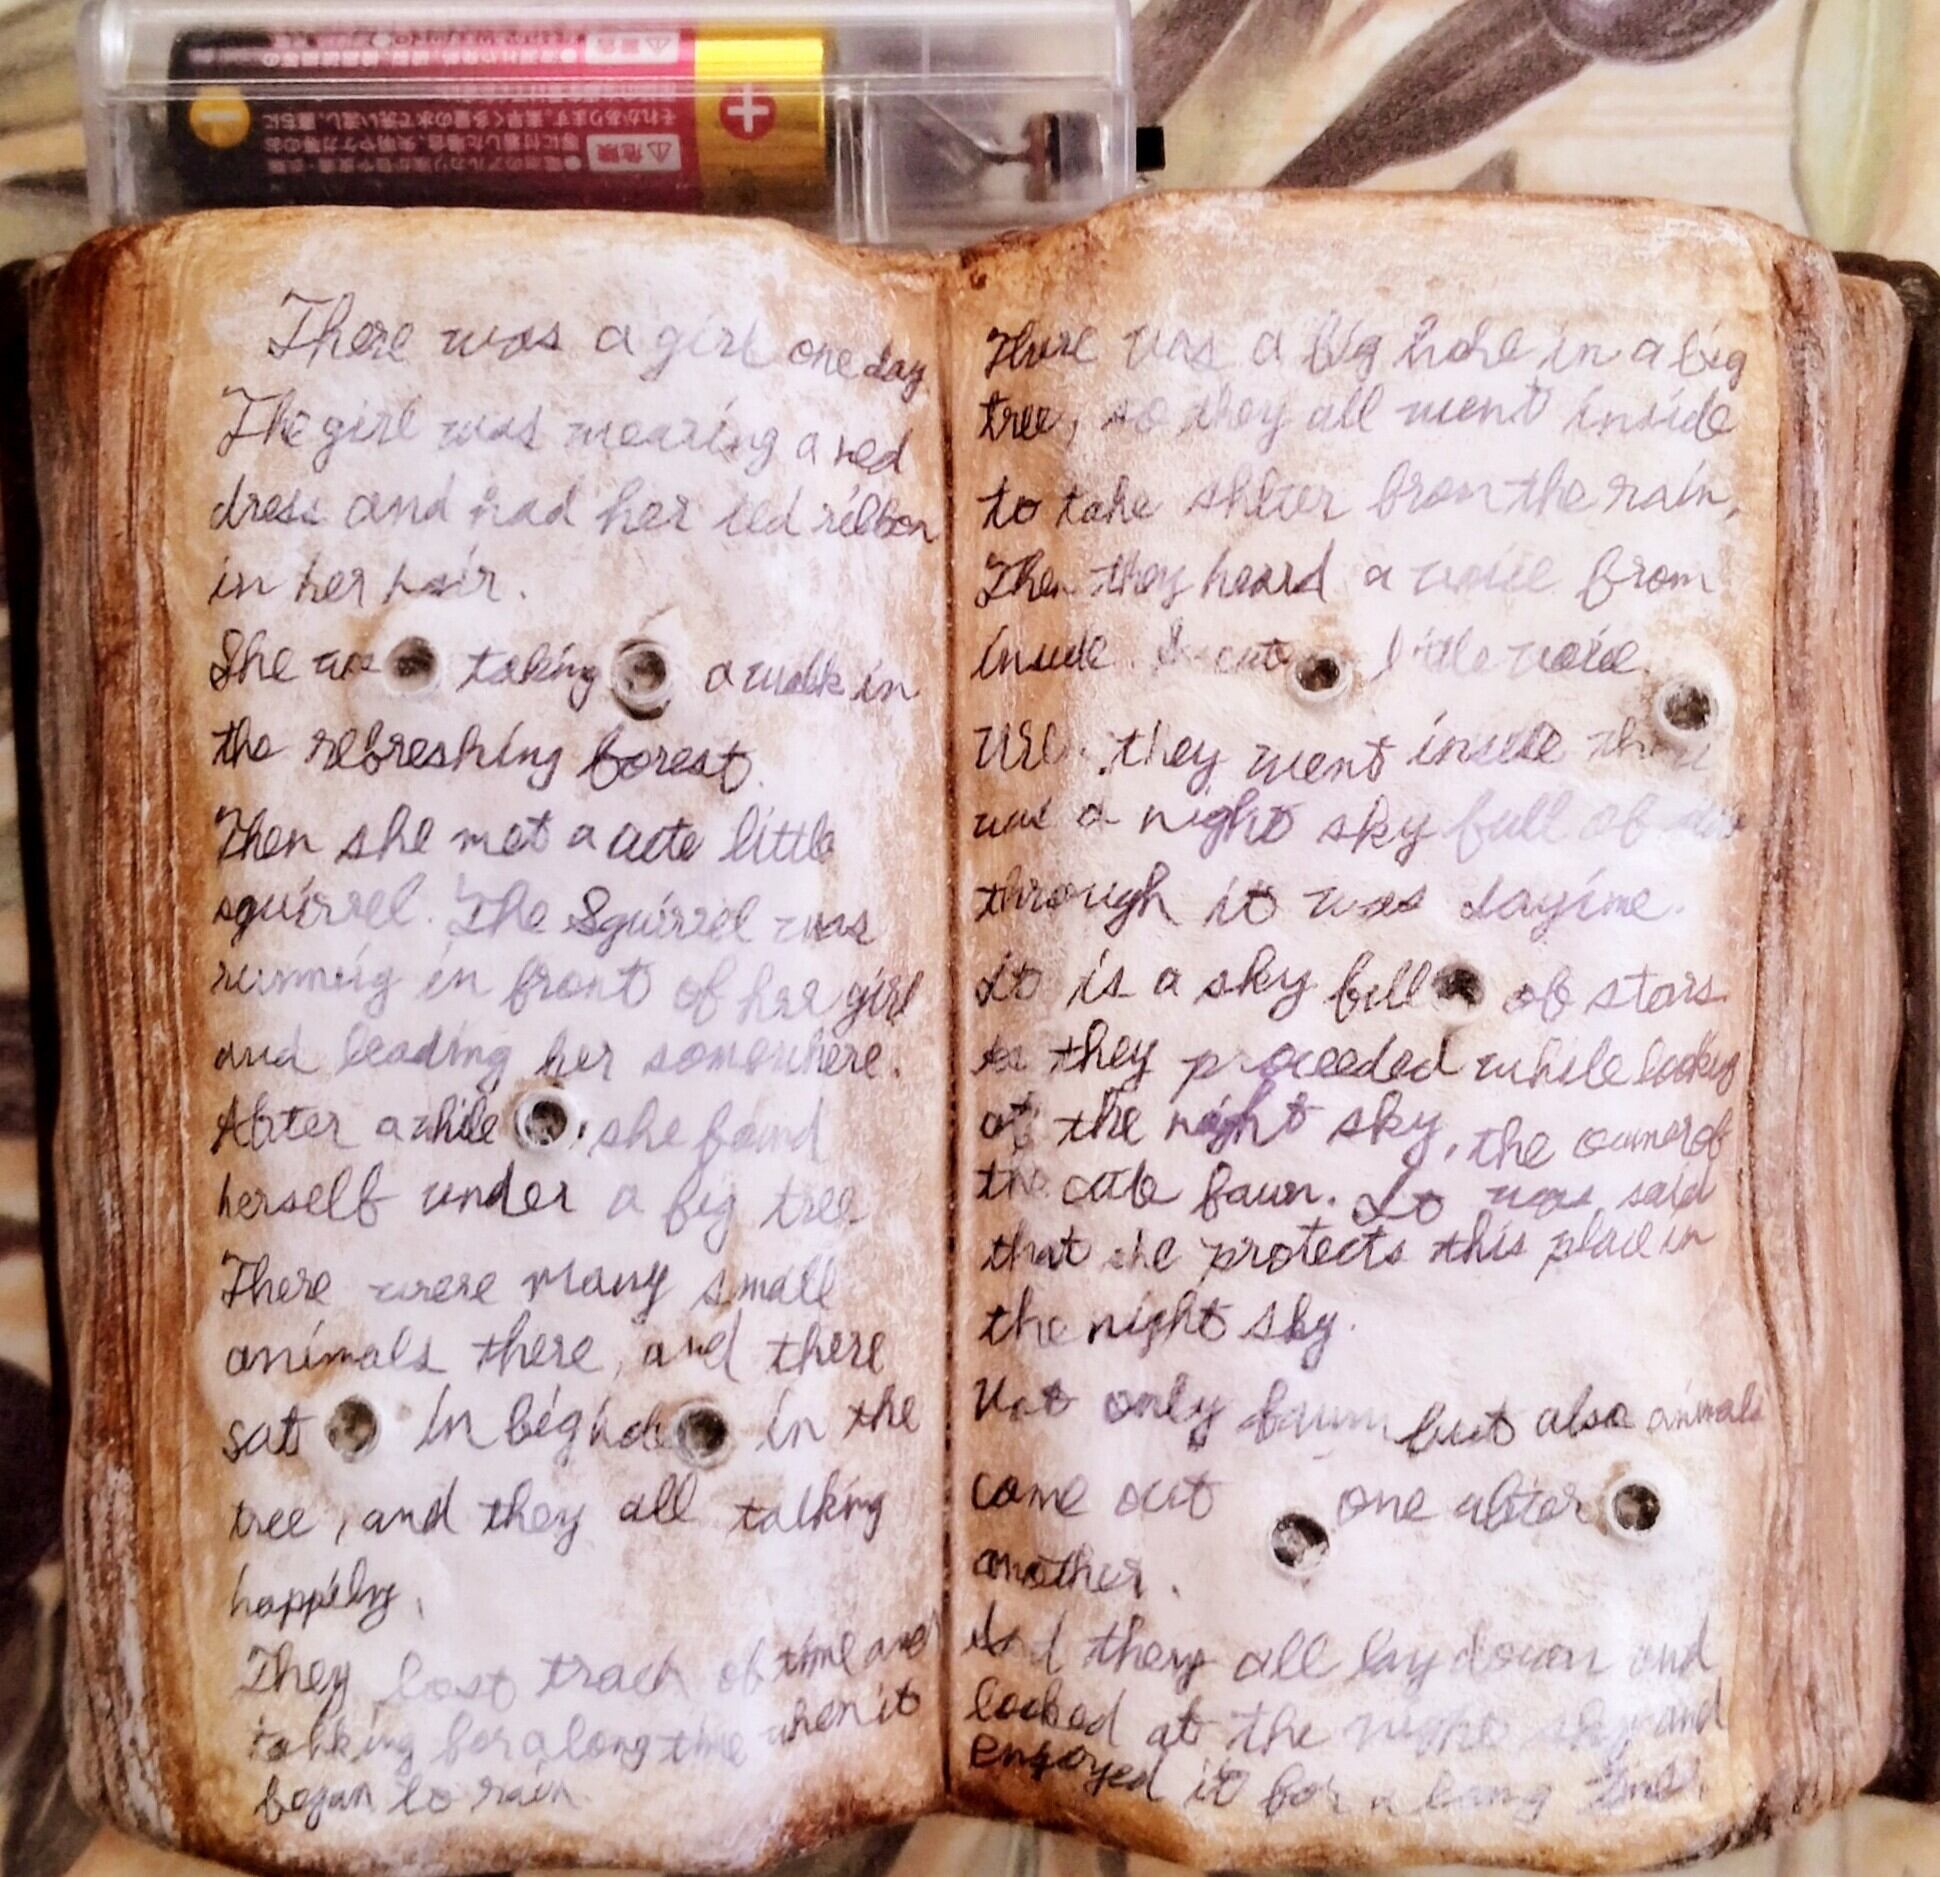 危険
There was a girl one day
The girl was wearing a red
dress and had her red ribbon
in her hair.
She was taking a walk in
the refreshing forest.
Then she met a cute little
squirrel. The Squirrel was
running in front of her girl
and leading her somewhere.
After awhile, she found
herself under a big tree
There were many small
animals there, and there
sat in big hole in the
tree, and they all talking
happily.
They lost track of time and
talking for a long time when it
began to rain.
There was a big hole in a big
tree, so they all went inside
to take shlter from the rain,
Then they heard a voice from
inside. cute little voice.
they went inside
was a night sky full of
through it was dayime.
it is a sky full of stars
they proceeded while looking
at the night sky, the owner of
the cute fawn. It was said
that she protects this place in
the night sky.
Not only fawn but also animals
come out one after
another.
And they all lay down and
looked at the night sky and
enjoyed it for a long time.